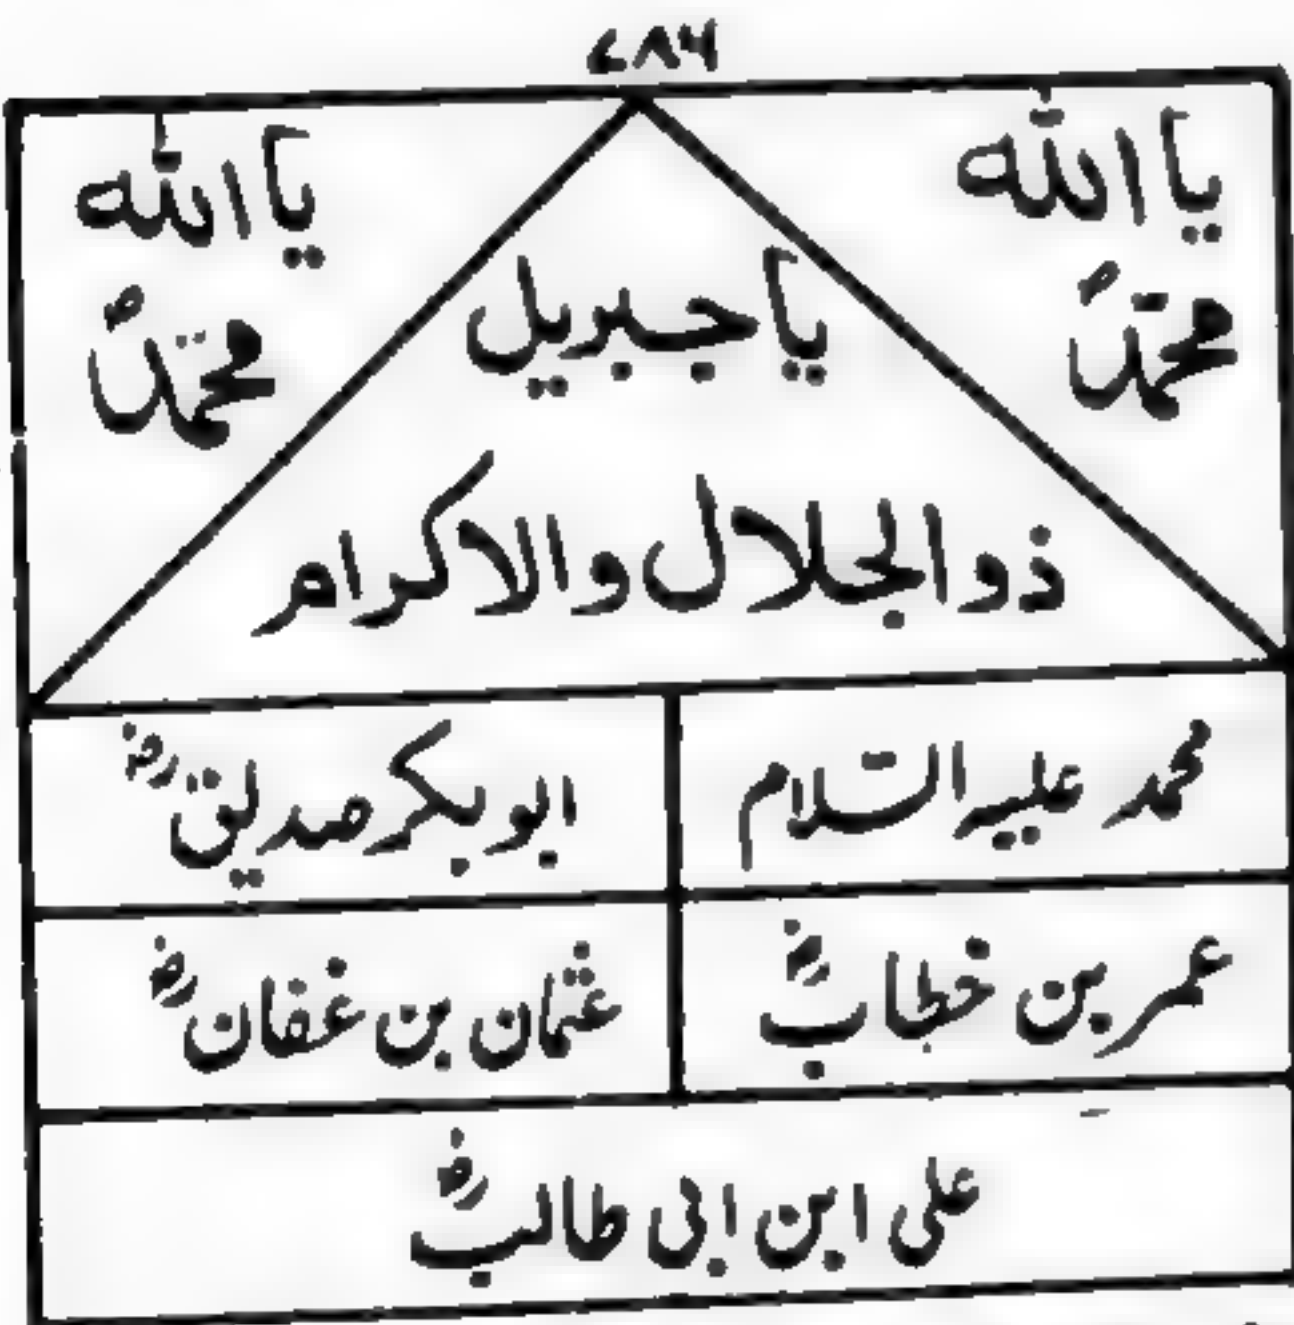 ۷۸۶
یا اللہ
محمدٌ
یا اللہ
محمدٌ
یا جبریل
ذوالجلال والاکرام
محمد علیہ السّلام
ابوبکر صدیق رضہ
عمر بن خطاب رضہ
عثمان بن غفان رضہ
علی ابن ابی طالب رضہ